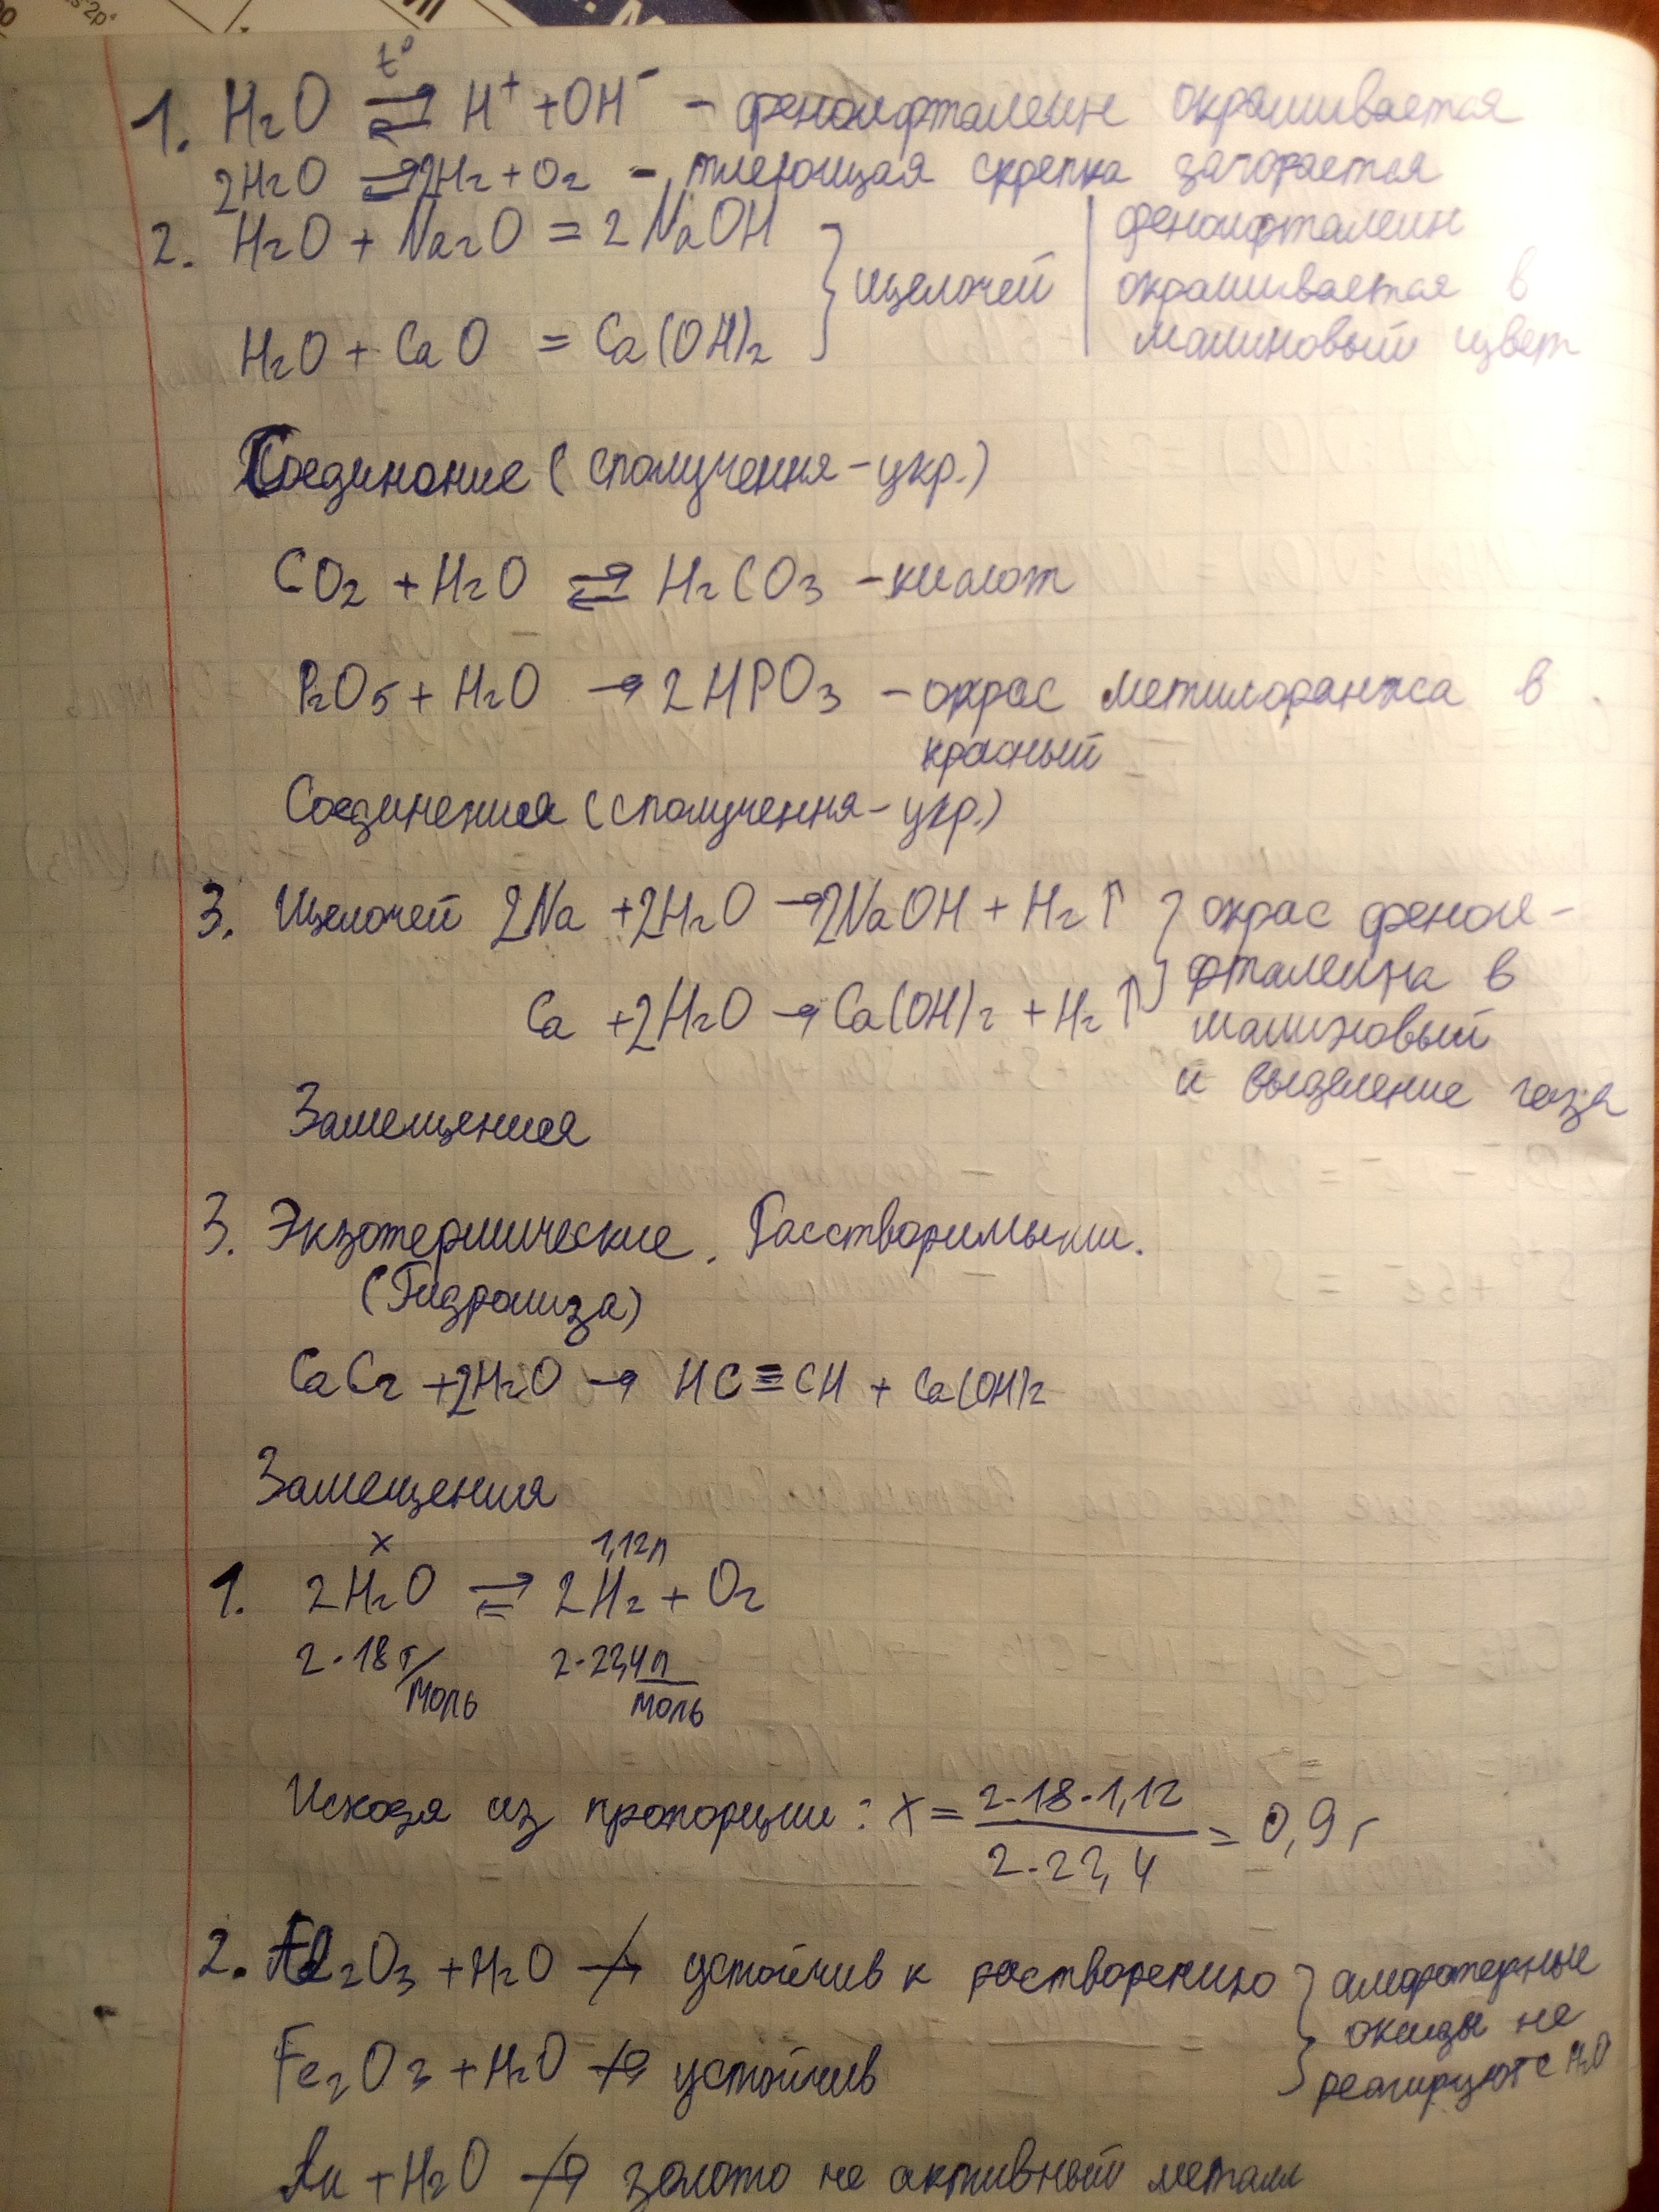 1. H₂O ⇄ t° H⁺ + OH⁻ – фенолфталеин окрашивается
2H₂O ⇄ 2H₂ + O₂ – тлеющая скрепка загорается
2. H₂O + Na₂O = 2NaOH } щелочей | фенолфталеин
окрашивается в
H₂O + CaO = Ca(OH)₂ малиновый цвет
Соединение (сполучення – укр.)
CO₂ + H₂O ⇄ H₂CO₃ – кислот
P₂O₅ + H₂O → 2HPO₃ – окрас метилоранжа в
красный
Соединения (сполучення – укр.)
3. Щелочей 2Na + 2H₂O → 2NaOH + H₂↑ } окрас фенол-
фталеина в
Ca + 2H₂O → Ca(OH)₂ + H₂↑ малиновый
и выделение газа
Замещения
3. Экзотермические. Расстворимыми.
(Гидролиза)
CaC₂ + 2H₂O → HC≡CH + Ca(OH)₂
Замещения
x 1,12л
1. 2H₂O ⇄ 2H₂ + O₂
2·18 г/моль 2·22,4 л/моль
Исходя из пропорции: x = 2·18·1,12 / 2·22,4 = 0,9 г
2. Al₂O₃ + H₂O ↛ устойчив к растворению } амфотерные
оксиды не
Fe₂O₃ + H₂O ↛ устойчив реагируют с H₂O
Au + H₂O ↛ золото не активный металл